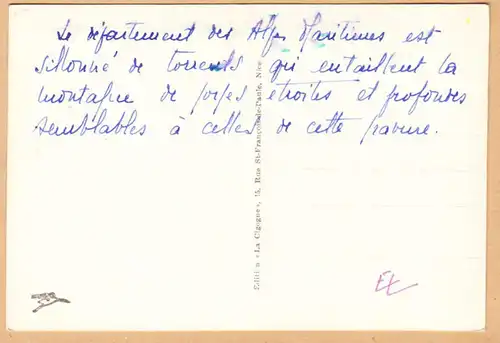 Le département des Alpes Maritimes est
sillonné de torrents qui entaillent la
montagne de gorges étroites et profondes
semblables à celles de cette gravure.
Edition « La Cigogne », 15, Rue St-François-de-Paule, Nice
EX